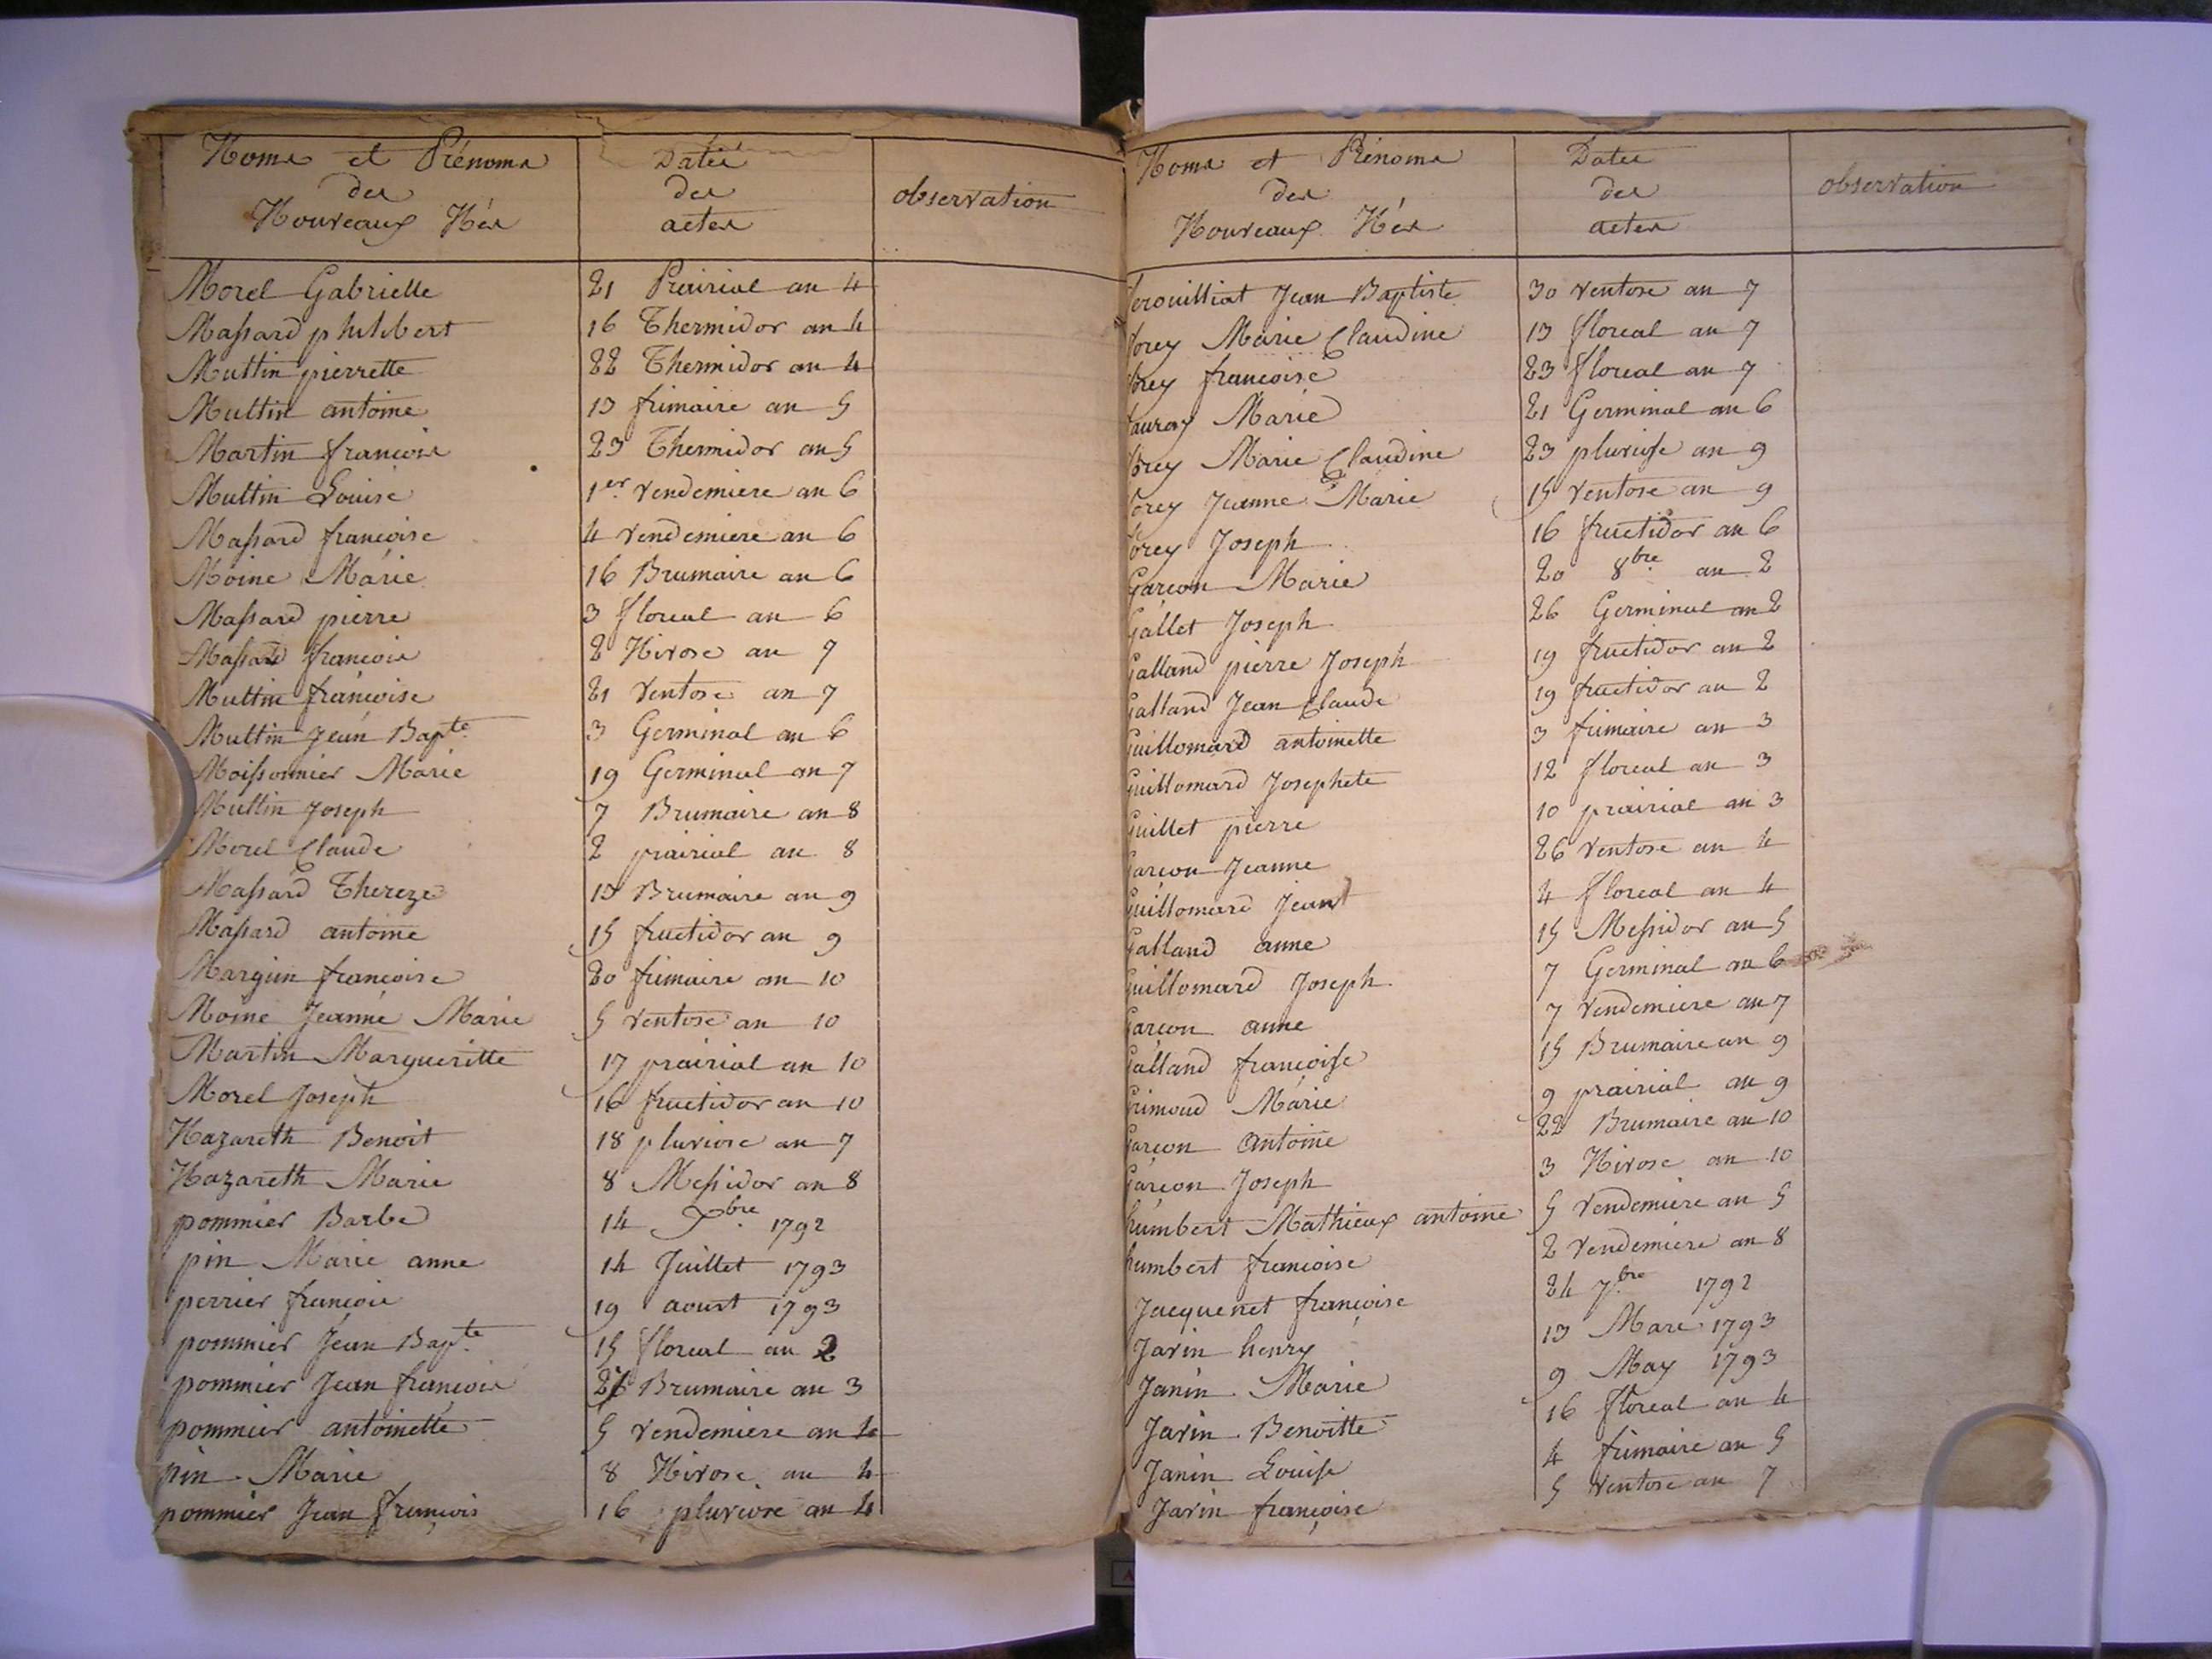 Noms et Prénoms
des
Nouveaux Nés
Dates
des
actes
observation
Morel Gabrielle 21 Prairial an 4
Massard philibert 16 Thermidor an 4
Muttin pierrette 22 Thermidor an 4
Muttin antoine 13 frimaire an 5
Martin francois 23 Thermidor an 5
Muttin Louise 1er vendemiere an 6
Massard francoise 4 vendemiere an 6
Moine Marie 16 Brumaire an 6
Massard pierre 3 floreal an 6
Massard francois 2 Nivose an 7
Muttin françoise 21 ventose an 7
Muttin Jean Bapte 3 Germinal an 6
Moissonnier Marie 19 Germinal an 7
Muttin Joseph 7 Brumaire an 8
Morel Claude 2 prairial an 8
Massard Thereze 13 Brumaire an 9
Massard antoine 15 fructidor an 9
Margun francoise 20 frimaire an 10
Moine Jeanne Marie 5 ventose an 10
Martin Margueritte 17 prairial an 10
Morel Joseph 16 fructidor an 10
Nazareth Benoit 18 pluviose an 7
Nazareth Marie 8 Messidor an 8
pommier Barbe 14 bre 1792
pin Marie anne 14 Juillet 1793
perrier francois 19 aoust 1793
pommier Jean Bapte 15 floreal an 2
pommier Jean françois Brumaire an 3
pommier antoinette 5 vendemiere an 4
pin Marie 8 Nivose an 4
pommier Jean françois 16 pluviose an 4
Noms et Prénoms
des
Nouveaux Nés
Dates
des
actes
observation
ferouilliat Jean Baptiste 30 ventose an 7
forey Marie Claudine 13 floreal an 7
forey francoise 23 floreal an 7
fauray Marie 21 Germinal an 6
forey Marie Claudine 23 pluviose an 9
forey Jeanne Marie 15 ventose an 9
forey Joseph 16 fructidor an 6
Garçon Marie 20 8bre an 2
Gallet Joseph 26 Germinal an 2
Galland pierre Joseph 19 fructidor an 2
Galland Jean Claude 19 fructidor an 2
Guillomard antoinette 3 frimaire an 3
Guillomard Josephete 12 floreal an 3
Guillet pierre 10 prairial an 3
Garçon Jeanne 26 ventose an 4
Guillomard Jean 4 floreal an 4
Galland anne 15 Messidor an 5
Guillomard Joseph 7 Germinal an 6
Garçon anne 7 vendemiere an 7
Galland françoise 15 Brumaire an 9
Grimoud Marie 9 prairial an 9
Garçon antoine 22 Brumaire an 10
Garçon Joseph 3 Nivose an 10
humbert Mathieux antoine 5 vendemiere an 5
humbert francoise 2 vendemiere an 8
Jacquenet françoise 24 7bre 1792
Javin henry 13 Mars 1793
Janin Marie 9 May 1793
Javin Benoitte 16 floreal an 4
Janin Louise 4 frimaire an 5
Javin françoise 5 ventose an 7